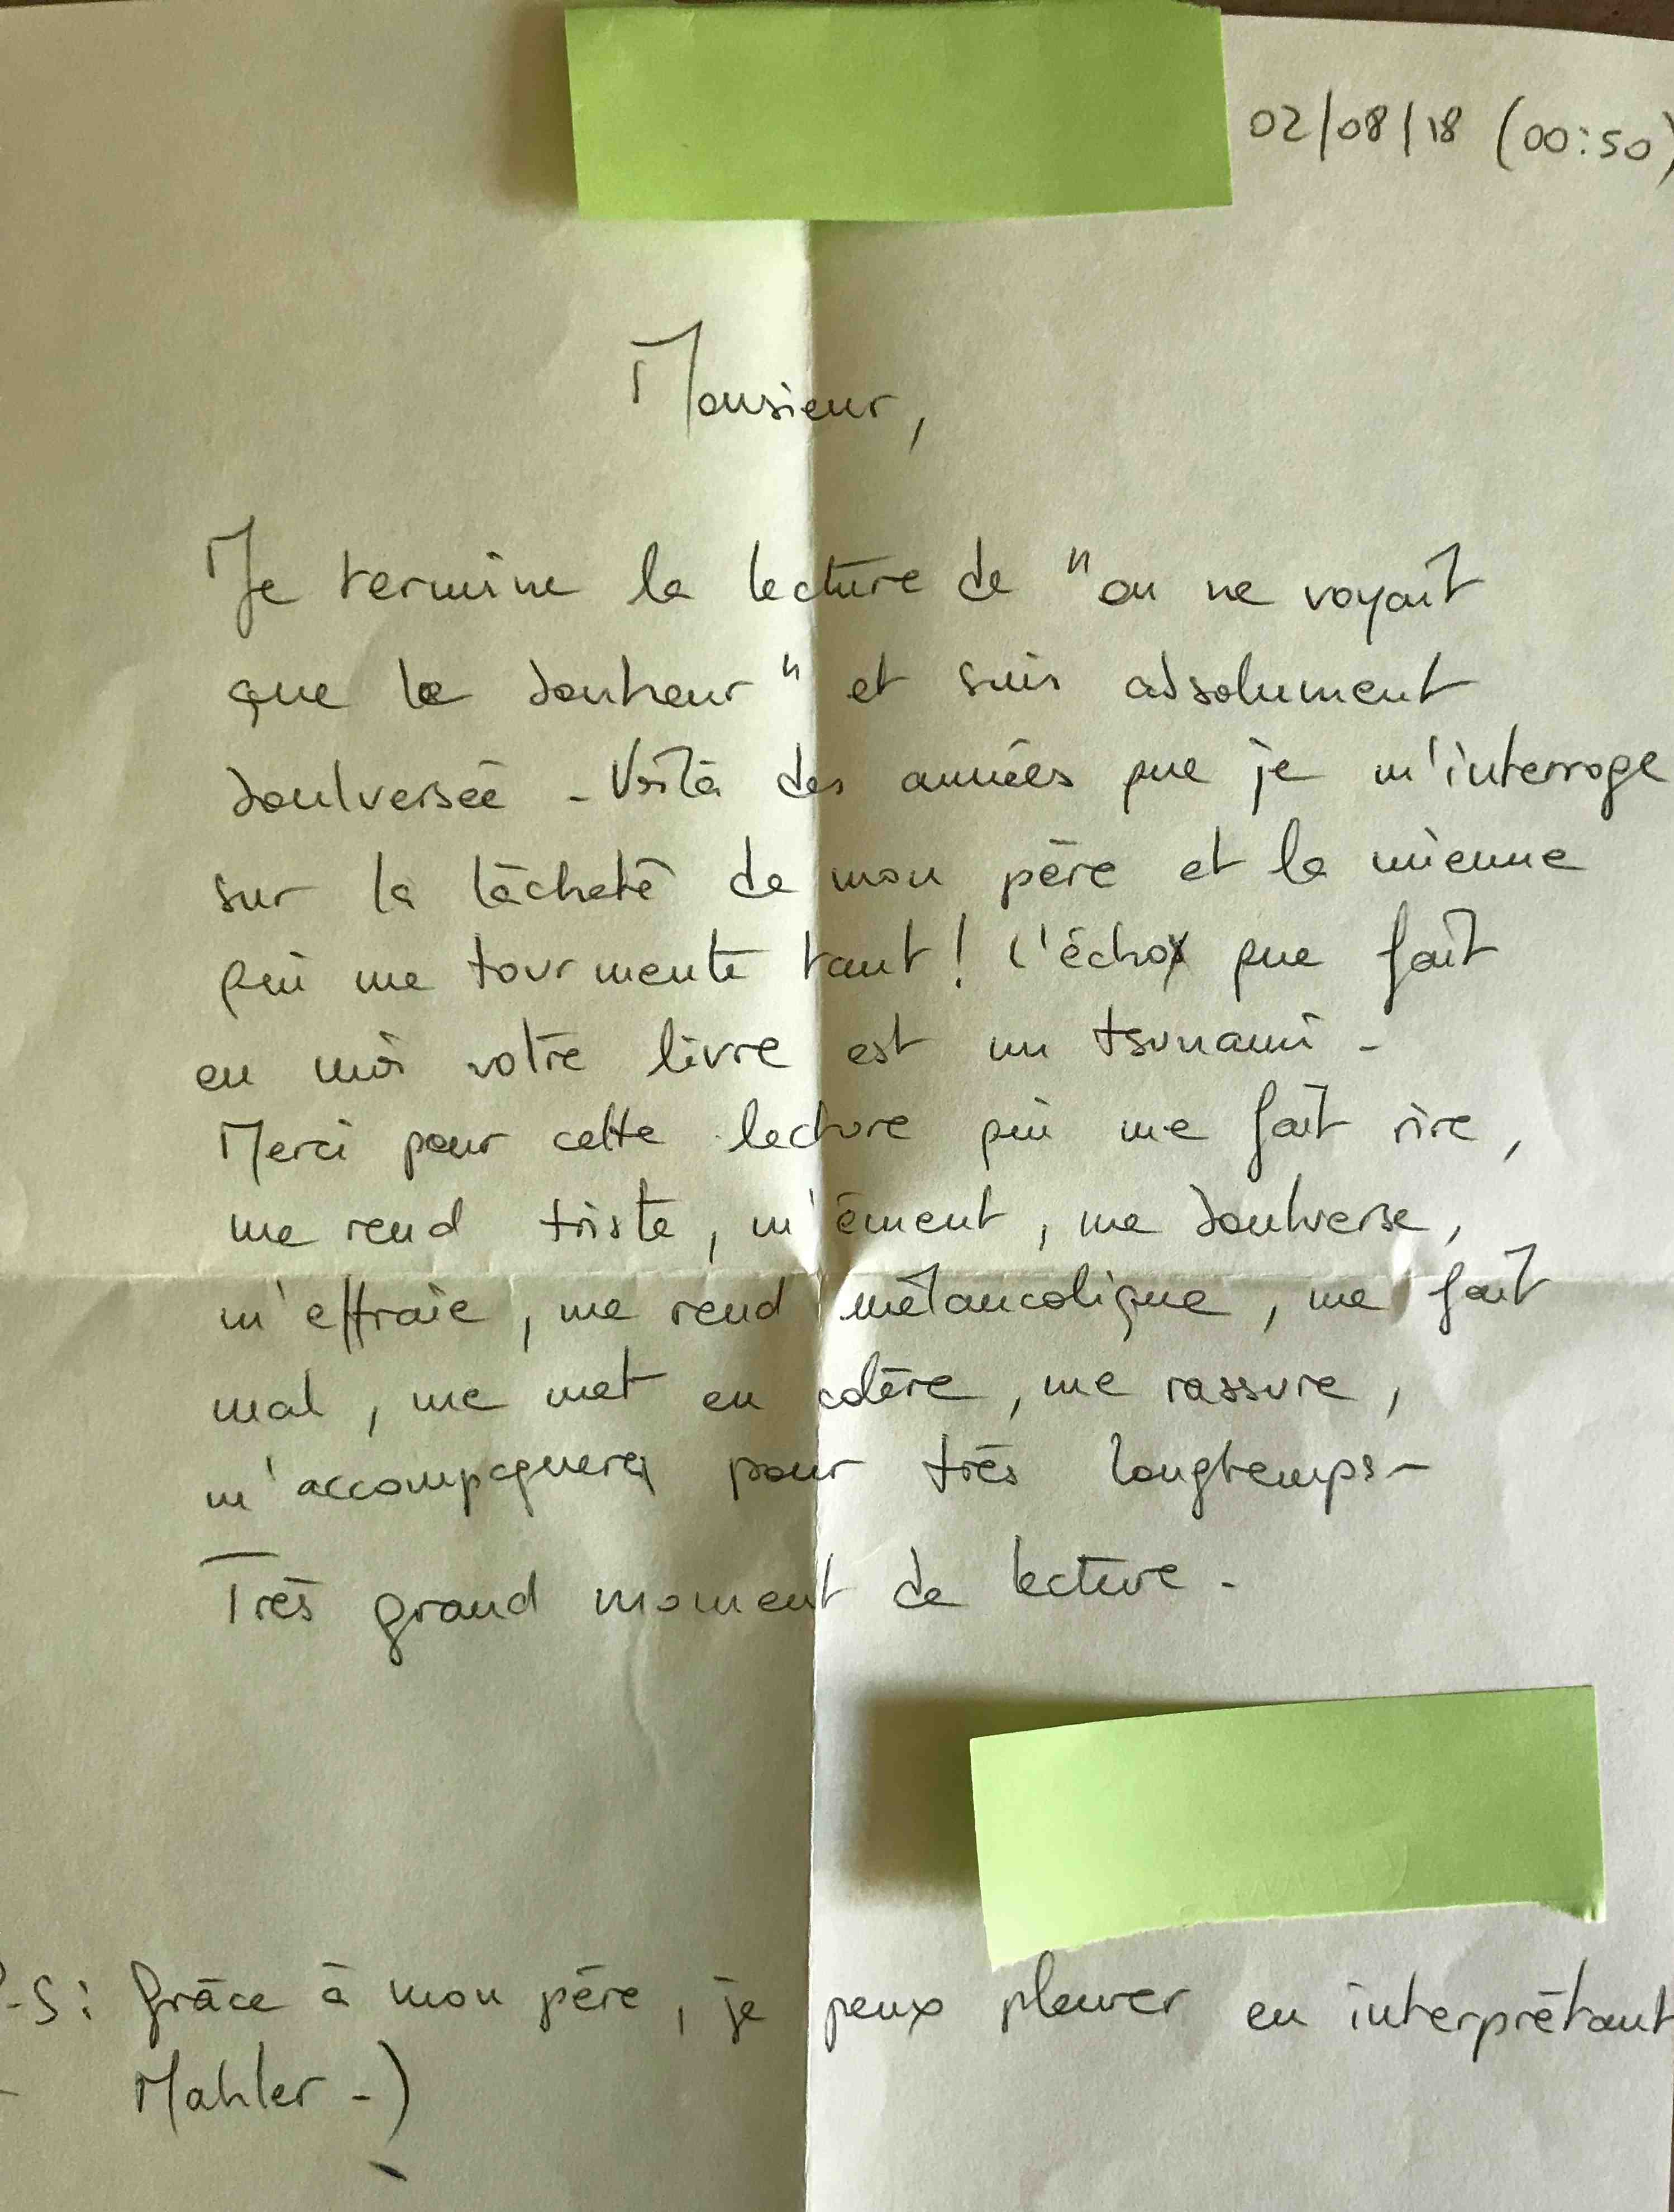 02/08/18 (00:50)
Monsieur,
Je termine la lecture de "on ne voyait
que le bonheur" et suis absolument
boulversée - Voilà des années que je m'interroge
sur la lâcheté de mon père et la mienne
qui me tourmente tant ! L'écho que fait
en moi votre livre est un tsunami -
Merci pour cette lecture qui me fait rire,
me rend triste, m'émeut, me boulverse,
m'effraie, me rend mélancolique, me fait
mal, me met en colère, me rassure,
m'accompagnera pour très longtemps -
Très grand moment de lecture -
P-S : Grâce à mon père, je peux pleurer en interprétant
Mahler -)